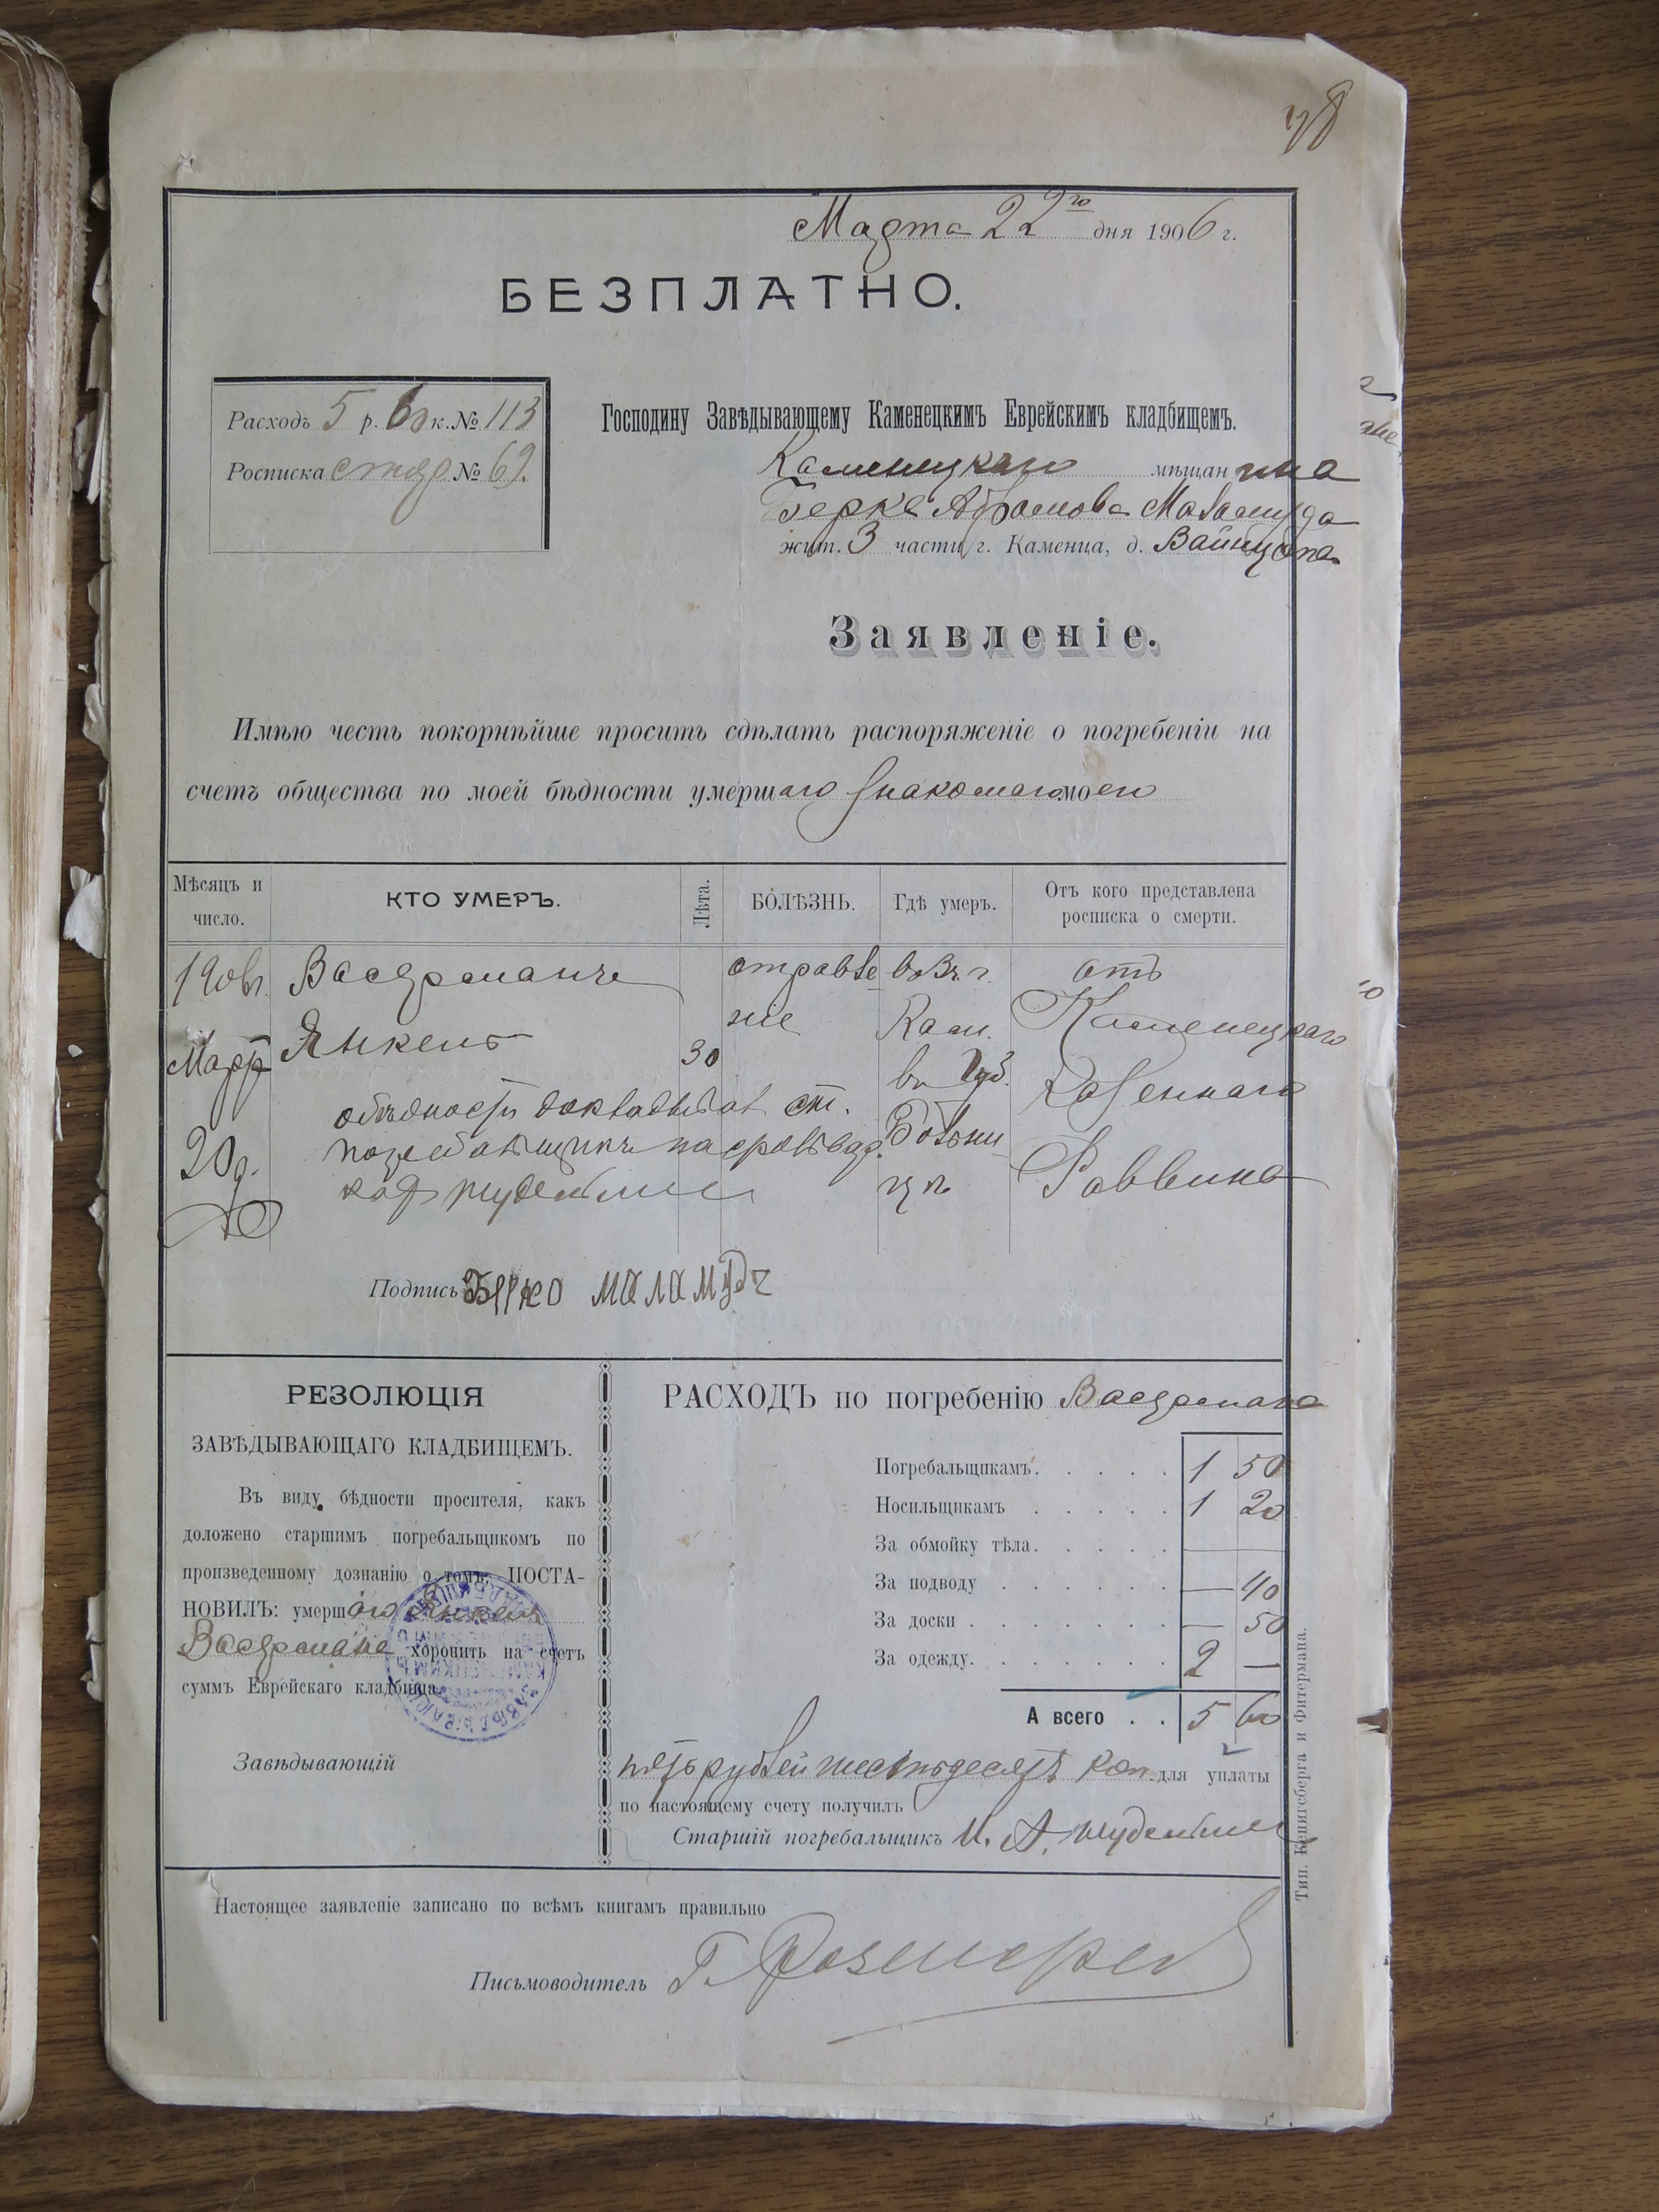 Марта 22го дня 1906 г.
БЕЗПЛАТНО.
Расходъ 5 р. 60 к. № 113
Росписка стар № 69.
Господину Завѣдывающему Каменецкимъ Еврейскимъ кладбищемъ.
Каменецкаго мѣщанина
Берка Абрамова Маламуда
жит. 3 части г. Каменца, д. Вайнцапа
Заявленіе.
Имѣю честь покорнѣйше просить сдѣлать распоряженіе о погребеніи на
счетъ общества по моей бѣдности умершаго знакомаго моего
Мѣсяцъ и число.
КТО УМЕРЪ.
Лѣта.
БОЛѢЗНЬ.
Гдѣ умеръ.
Отъ кого представлена росписка о смерти.
1906 г.
Март
20 д.
Васерманъ
Янкель
30
отравле
ніе
въ г.
Кам.
въ Губ.
Больни
цѣ
отъ
Каменецкаго
Казеннаго
Раввина
обѣдности докладывал ст.
погребальщикъ
Подпись Берко Маламудъ
РЕЗОЛЮЦІЯ
ЗАВѢДЫВАЮЩАГО КЛАДБИЩЕМЪ.
Въ виду бѣдности просителя, какъ
доложено старшимъ погребальщикомъ по
произведенному дознанію о томъ: ПОСТА-
НОВИЛЪ: умершаго Янкеля
Васермана хоронить на счетъ
суммъ Еврейскаго кладбища.
Завѣдывающій
РАСХОДЪ по погребенію Васермана
Погребальщикамъ. . . . . 1 50
Носильщикамъ . . . . . 1 20
За обмойку тѣла. . . . . —
За подводу . . . . . . — 40
За доски . . . . . . . — 50
За одежду. . . . . . . 2 —
А всего . . 5 60
пять рублей шестьдесятъ коп. для уплаты
по настоящему счету получилъ
Старшій погребальщикъ
Настоящее заявленіе записано по всѣмъ книгамъ правильно
Письмоводитель
Тип. Кенигсберга и Фитермана.